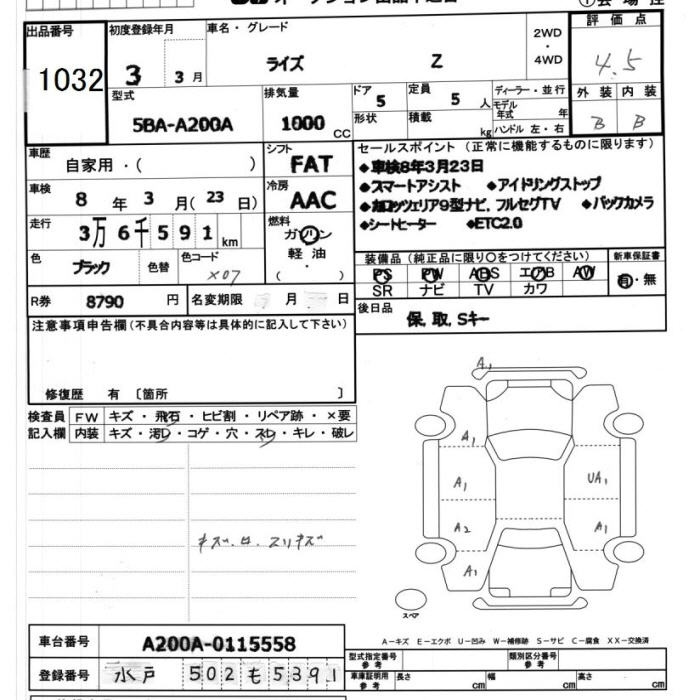 出品番号 1032
初度登録年月 3 3月
車名・グレード ライズ Z
2WD ・ 4WD
評価点 4.5
外装 内装
B B
型式 5BA-A200A
排気量 1000 CC
ドア 5 定員 5 人
形状 積載 kg
ディーラー・並行
モデル年式 年
ハンドル 左・右
車歴 自家用・( )
シフト FAT
セールスポイント (正常に機能するものに限ります)
◆車検8年3月23日
◆スマートアシスト ◆アイドリングストップ
9型ナビ、フルセグTV ◆バックカメラ
◆シートヒーター ◆ETC2.0
車検 8年 3月(23日)
冷房 AAC
走行 3万6千591km
燃料 ガソリン 軽油 ( )
色 ブラック 色替 色コード X07
装備品 (純正品に限り○をつけてください) 新車保証書
PS PW ABS エアB AW 有・無
SR ナビ TV カワ
R券 8790 円 名変期限 月 日
後日品 保,取,Sキー
注意事項申告欄(不具合内容等は具体的に記入して下さい)
修復歴 有 〔箇所 〕
検査員 FW キズ・飛石・ヒビ割・リペア跡・×要
記入欄 内装 キズ・汚レ・コゲ・穴・スレ・キレ・破レ
キズ・ロ・スリキズ
A1
A1
A1 UA1
A2 A1
A1
スペア
A-キズ E-エクボ U-凹み W-補修跡 S-サビ C-腐食 XX-交換済
車台番号 A200A-0115558
型式指定番号 参考 類別区分番号 参考
登録番号 水戸 502 も 5391
車庫証明用 参考 長さ cm 幅 cm 高さ cm